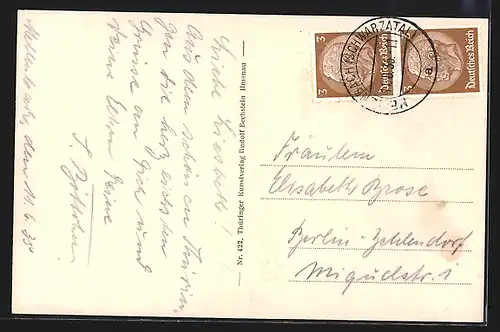 Mellenbach, den 11.6.35
Liebe Liesbeth!
Aus dem schönen Thürin-
gen die herzlichsten
Grüsse an Grete und
Deine Eltern Deine
Nr. 422. Thüringer Kunstverlag Rudolf Bechstein Ilmenau
(SCHWARZATAL)
3 Deutsches Reich 3
Deutsches Reich
Fräulein
Elisabeth Brose
Berlin-Zehlendorf
Miquelstr. 1